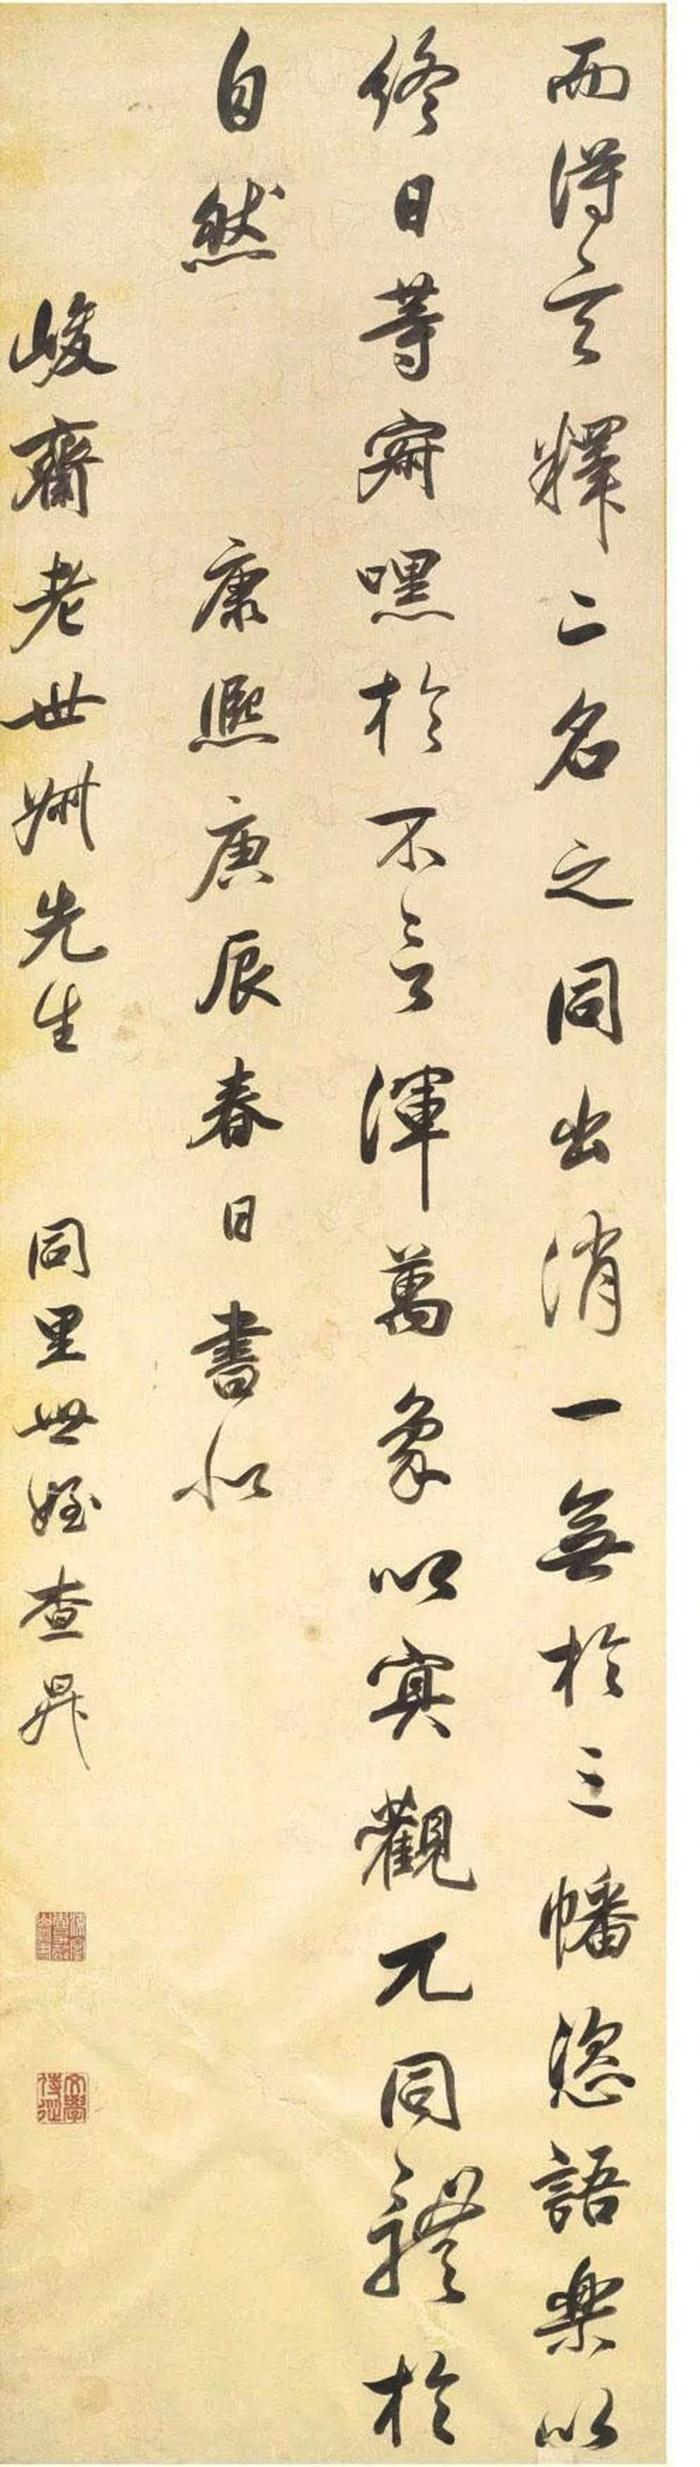 而得玄釋二名之同出消一無於三幡恣語樂以
終日等寂嘿於不言渾萬象以冥觀兀同體於
自然 康熙庚辰春日書似
峻齋老世叔先生 同里世姪查昇